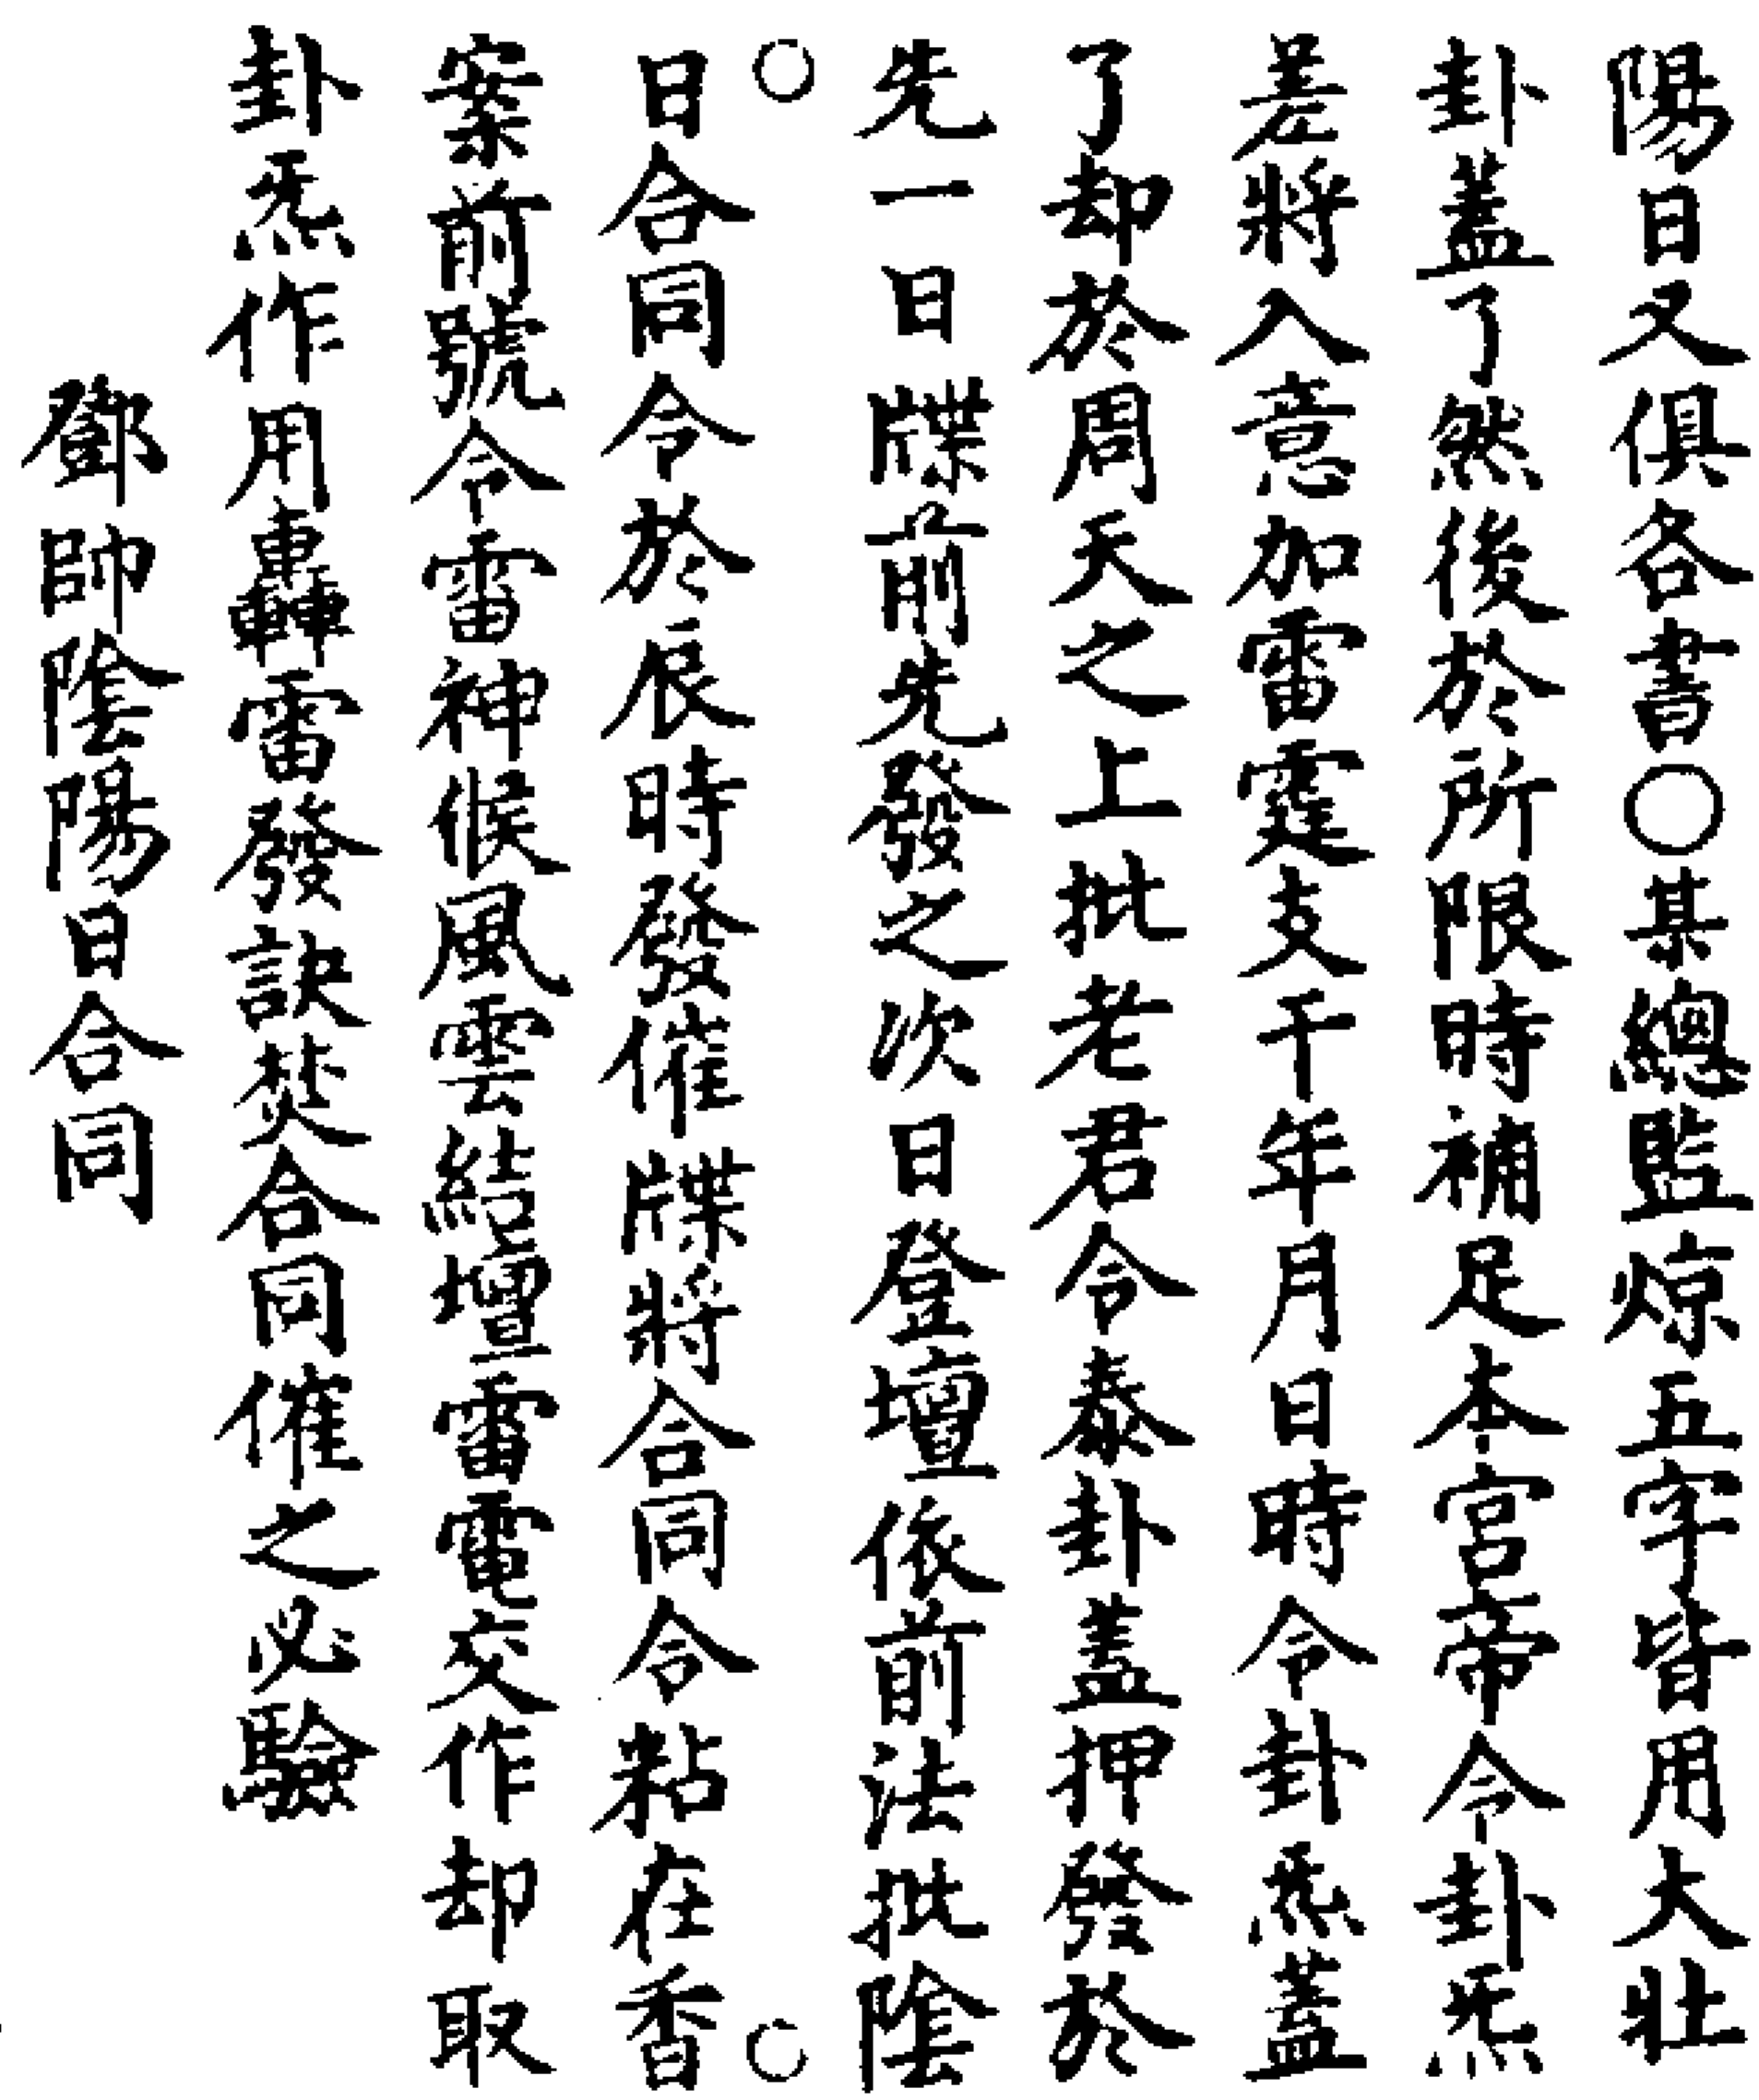 陽日又俱各書○某總監焿五字皆用大壯
卦蓋了然後於所限時補足本宮帝令卦炁
差將入意加雷霆支干年月日時令卦炁蓋
了却於周天之上批老君令泰卦蓋押發於
先一日牒前先發之次日登壇依前法批陰
○ ○
日合同令於辰時發催牒將合同令粘在香
案前號令雷神候風雲結壇雷電交作却取
卦炁作用轟雷發訣焚合同催之必驗
鄧帥陰陽日合同